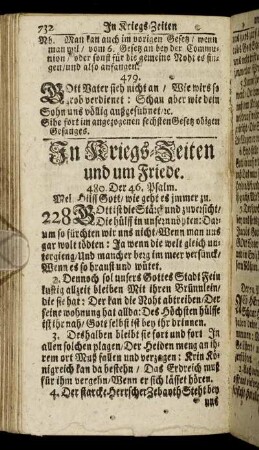 732 In Kriegs-Zeiten
Nb. Man kan auch im vorigen Gesetz / wenn
man wil / vom 6. Gesetz an bey der Commu-
nion / oder sonst für die gemeine Noht es sin-
gen / und also anfangen.
479.
GOtt Vater sieh nicht an / Wie wirs so
grob verdienet : Schau aber wie dein
Sohn uns völlig außgesühnet / ꝛc.
Gehe fort im angezogenen sechsten Gesetz obigen
Gesanges.
In Kriegs-Zeiten
und um Friede.
480. Der 46. Psalm.
Mel. Hilff Gott / wie geht es immer zu.
228 GOtt ist die Stärck und zuversicht /
Die hülff in unsern nöhten: Dar-
um so fürchten wir uns nicht / Wenn man uns
gar wolt tödten : Ja wenn die welt gleich un-
tergieng Und mancher berg im meer versüncke /
Wenn es so brauset und wütet.
2. Dennoch sol unsers Gottes Stadt Fein
lustig allzeit bleiben Mit ihren Brünnlein /
die sie hat : Der kan die Noht abtreiben / Der
seine wohnung hat allda: Des Höchsten hülffe
ist ihr nah / Gott selbst ist bey ihr drinnen.
3. Deshalben bleibt sie fort und fort In
allen solchen plagen / Der Heiden meng an ih-
rem ort Muß fallen und verzagen : Kein Kö-
nigreich kan da bestehn / Das Erdreich muß
für ihm vergehn / Wenn er sich lässet hören.
4. Der starcke Herrscher Zebaoth Steht bey
uns